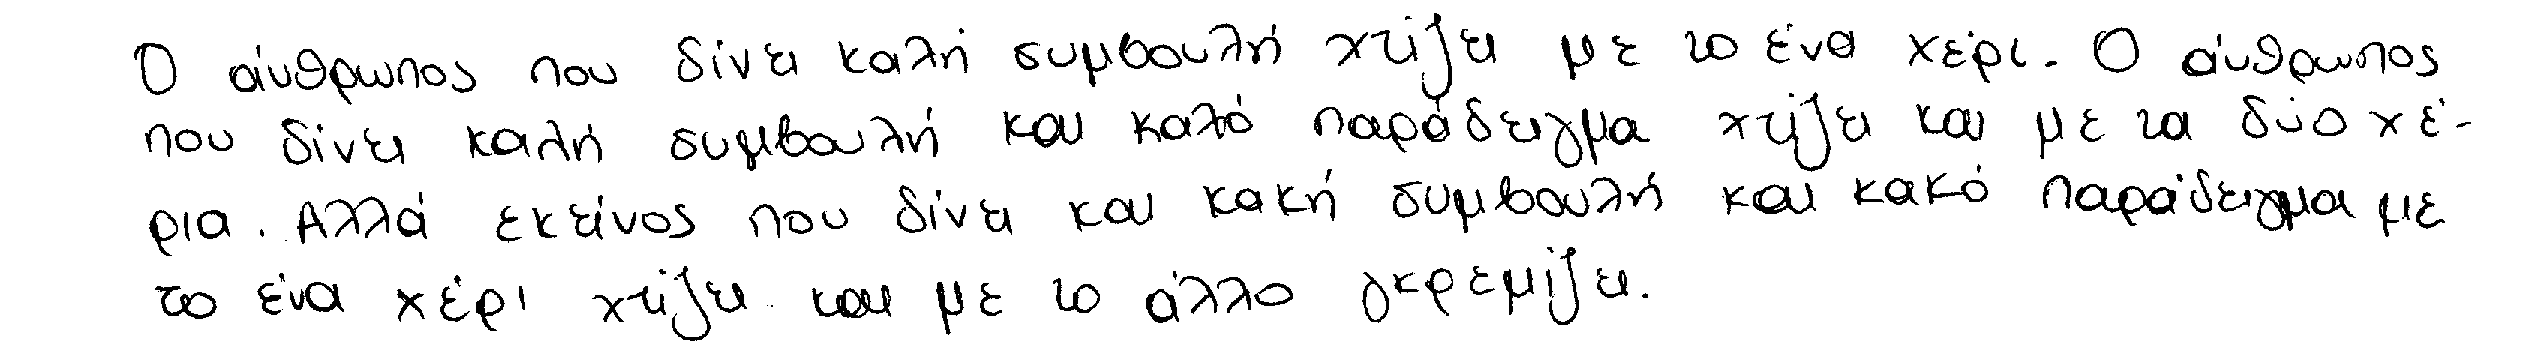 Ο άνθρωπος που δίνει καλή συμβουλή χτίζει με το ένα χέρι. Ο άνθρωπος
που δίνει καλή συμβουλή και καλό παράδειγμα χτίζει και με τα δύο χέ-
ρια. Αλλά εκείνος που δίνει και κακή συμβουλή και κακό παράδειγμα με
το ένα χέρι χτίζει και με το άλλο γκρεμίζει.